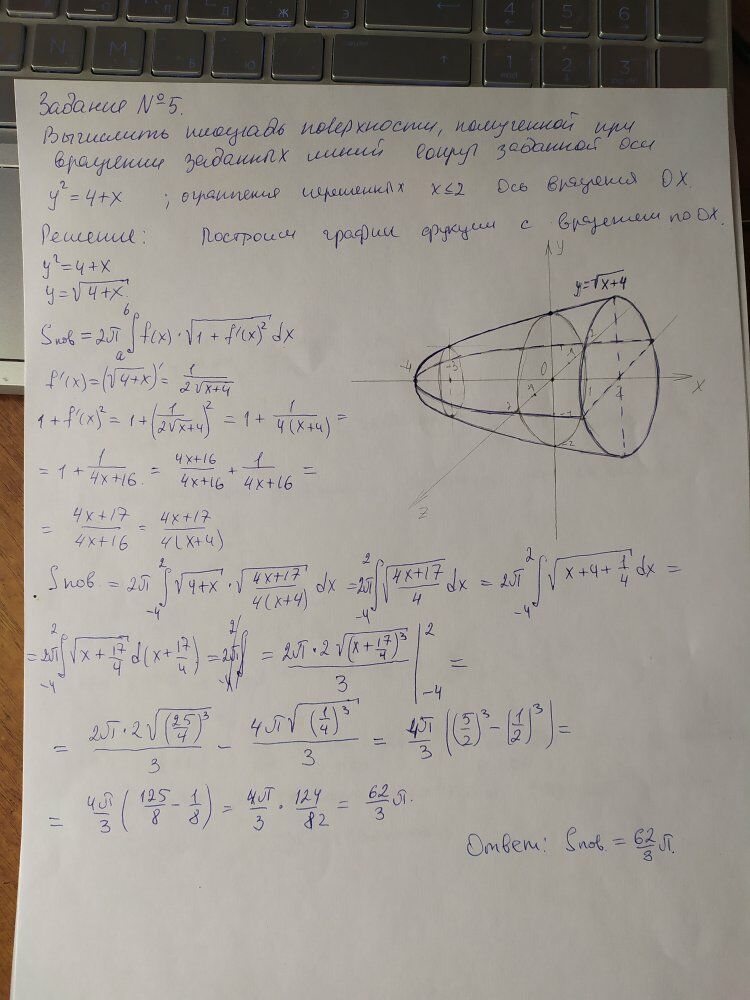 Задание №5.
Вычислить площадь поверхности, полученной при
вращении заданных линий вокруг заданной оси
y² = 4+x ; ограничения переменных x≤2 Ось вращения OX.
Решение: Построим график функции с вращением по OX.
y² = 4+x
y = √(4+x).
Sпов = 2π ∫ₐᵇ f(x) · √(1 + f'(x)²) dx
f'(x) = (√(4+x))' = 1/(2√(x+4))
1 + f'(x)² = 1 + (1/(2√(x+4)))² = 1 + 1/(4(x+4)) =
= 1 + 1/(4x+16) = (4x+16)/(4x+16) + 1/(4x+16) =
= (4x+17)/(4x+16) = (4x+17)/(4(x+4))
Sпов. = 2π ∫₋₄² √(4+x) · √((4x+17)/(4(x+4))) dx = 2π ∫₋₄² √((4x+17)/4) dx = 2π ∫₋₄² √(x+4+1/4) dx =
= 2π ∫₋₄² √(x+17/4) d(x+17/4) = = (2π·2√((x+17/4)³))/3 |₋₄² =
= (2π·2√((25/4)³))/3 − (4π√((1/4)³))/3 = 4π/3 ((5/2)³ − (1/2)³) =
= 4π/3 (125/8 − 1/8) = 4π/3 · 124/82 = 62/3 π.
Ответ: Sпов. = 62/3 π.
y
y=√(x+4)
-4
-3
0
2
x
z
-2